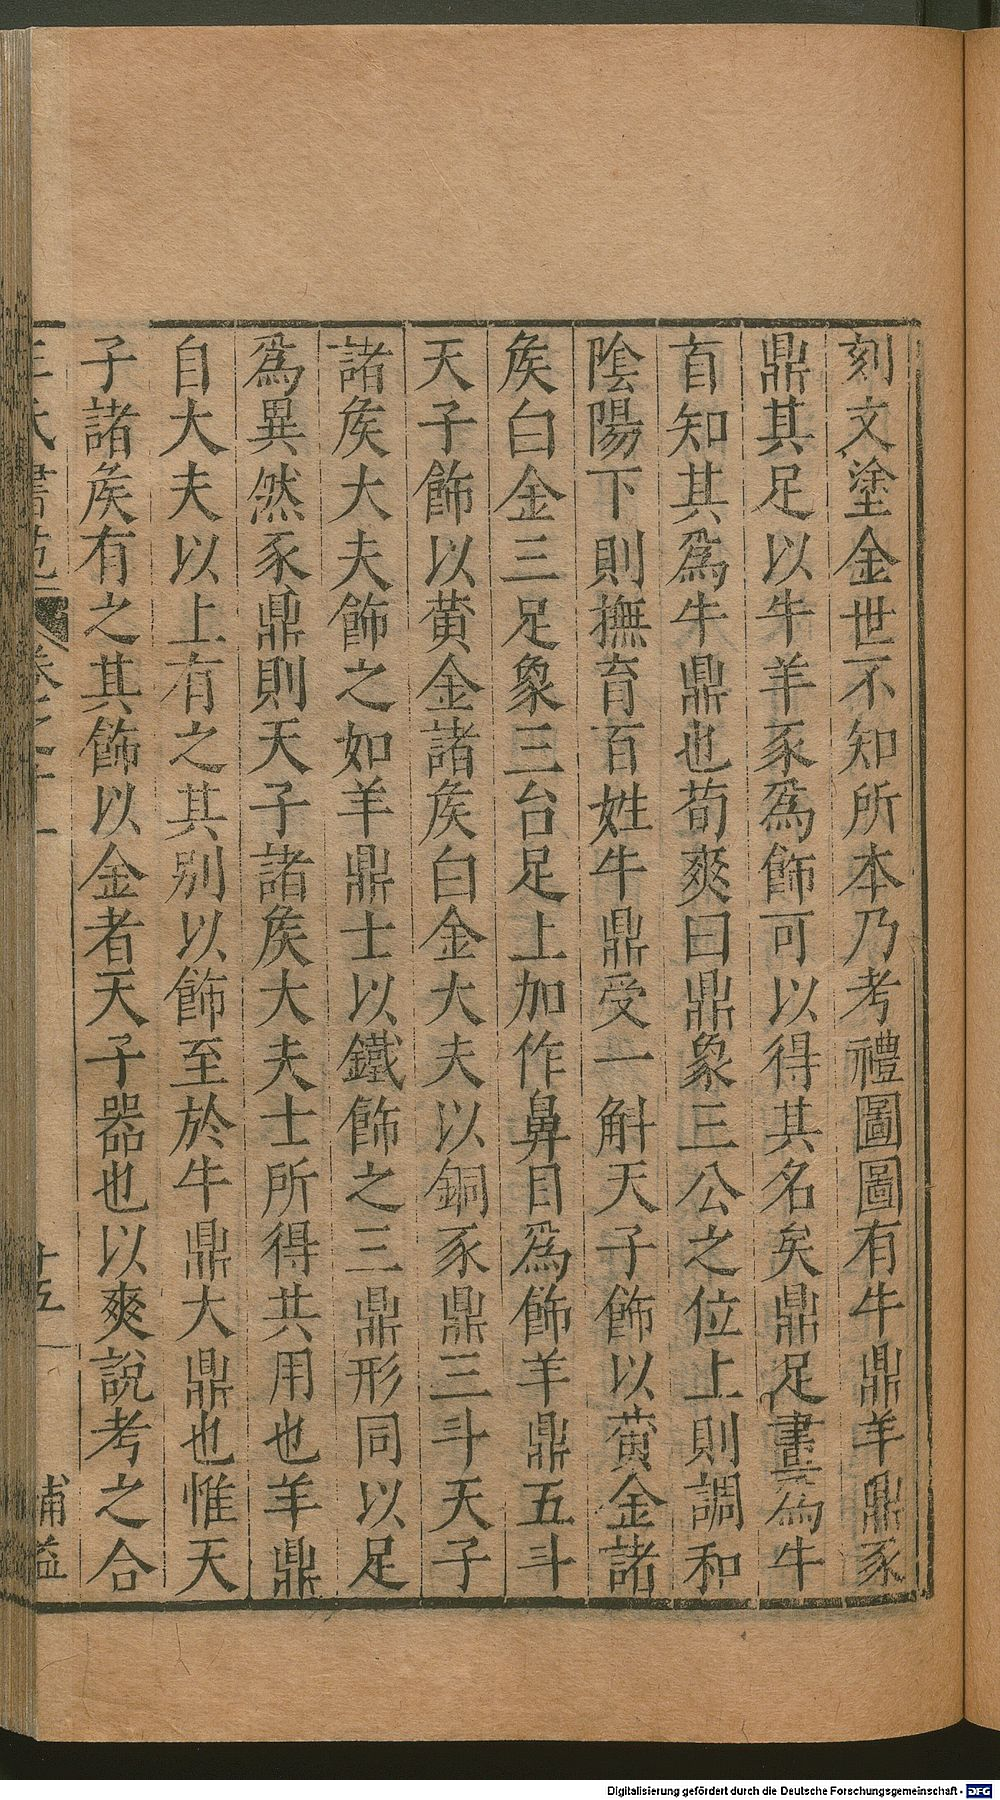 刻文塗金世不知所本乃考禮圖圖有牛鼎羊鼎豕
鼎其足以牛羊豕爲飾可以得其名矣鼎足畫爲牛
首知其爲牛鼎也荀爽曰鼎象三公之位上則調和
陰陽下則撫育百姓牛鼎受一斛天子飾以黄金諸
矦白金三足象三台足上加作鼻目爲飾羊鼎五斗
天子飾以黄金諸矦白金大夫以銅豕鼎三斗天子
諸矦大夫飾之如羊鼎士以鐵飾之三鼎形同以足
爲異然豕鼎則天子諸矦大夫士所得共用也羊鼎
自大夫以上有之其别以飾至於牛鼎大鼎也惟天
子諸矦有之其飾以金者天子器也以爽說考之合
王氏書苑 卷之十一 十五 補益
Digitalisierung gefördert durch die Deutsche Forschungsgemeinschaft - DFG